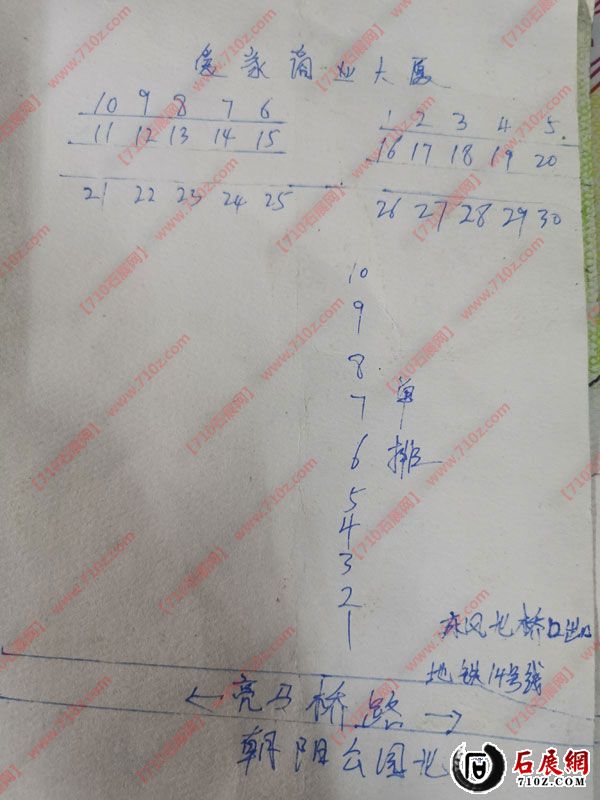 商业大厦
10 9 8 7 6
1 2 3 4 5
11 12 13 14 15
16 17 18 19 20
21 22 23 24 25
26 27 28 29 30
10
9
8
7 单
6 排
5
4
3
2
1
东风北桥口出口
地铁14号线
←亮马桥路→
朝阳公园北
【710石展网】 www.710z.com
石展網
710Z.COM